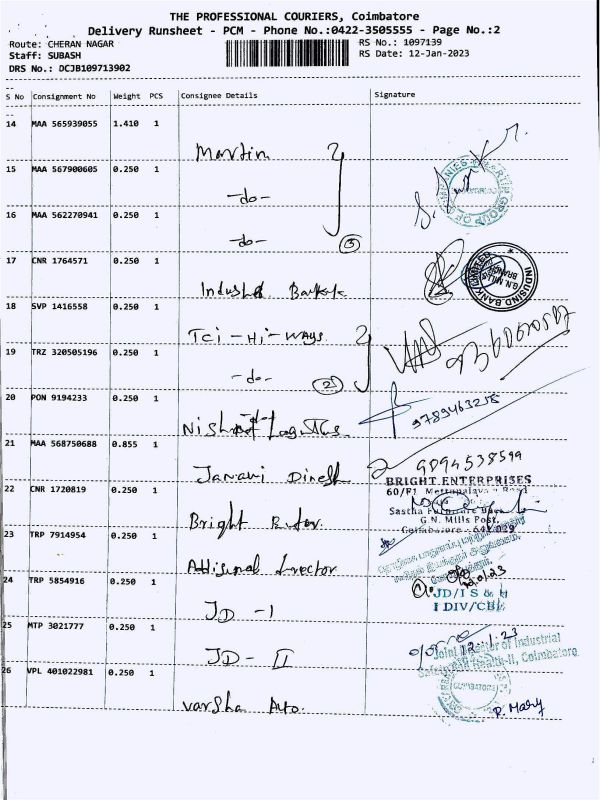 THE PROFESSIONAL COURIERS, Coimbatore
Delivery Runsheet - PCM - Phone No.:0422-3505555 - Page No.:2
Route: CHERAN NAGAR
RS No.: 1097139
Staff: SUBASH
RS Date: 12-Jan-2023
DRS No.: DCJB109713902
S No Consignment No Weight PCS Consignee Details Signature
14 MAA 565939055 1.410 1
Martin
15 MAA 567900605 0.250 1
-do-
16 MAA 562270941 0.250 1
-do- 3
17 CNR 1764571 0.250 1
INDUSIND BANK LIMITED
G.N. MILLS BRANCH
18 SVP 1416558 0.250 1
Tci - Hi - ways
19 TRZ 320505196 0.250 1
-do- 2
20 PON 9194233 0.250 1
9789463258
21 MAA 568750688 0.855 1
Janani Dinesh
9094538599
22 CNR 1720819 0.250 1
Bright
BRIGHT ENTERPRISES
60/F1
Sastha
G.N. Mills Post,
Coimbatore - 641 029
23 TRP 7914954 0.250 1
24 TRP 5854916 0.250 1
JD - I
JD/I S & H
I DIV/CBE
25 MTP 3021777 0.250 1
JD - II
12.1.23
Joint Director of Industrial
Safety and Health-II, Coimbatore
26 VPL 401022981 0.250 1
varsha Auto.
P. Mary